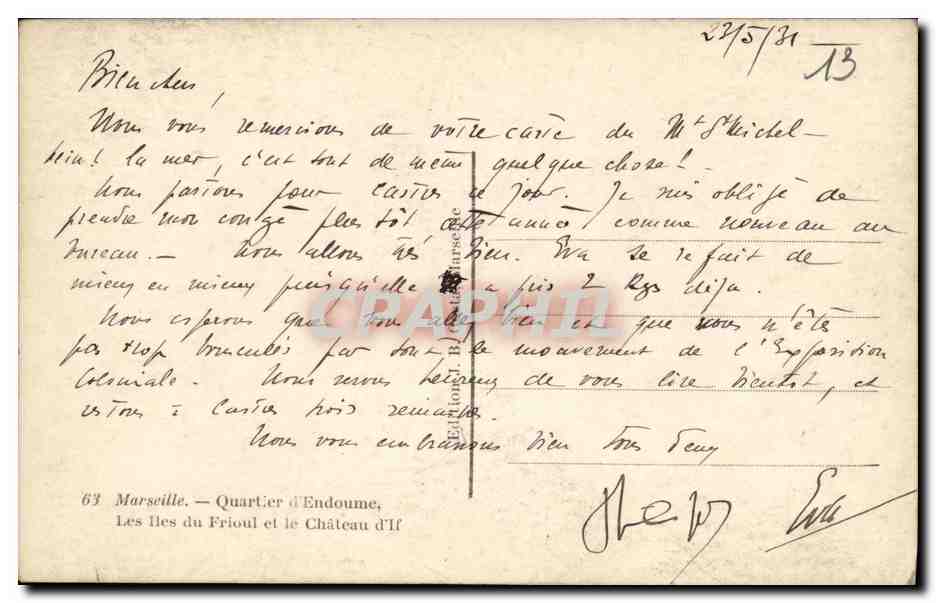 23/5/31
13
Bien chers,
Nous vous remercions de votre carte du Mt St Michel -
hein! la mer, c'est tout de même quelque chose!
Nous partons pour Castres ce jour. Je suis obligé de
prendre mon congé plus tôt cette année comme nouveau au
bureau. - Nous allons très bien. Eva se refait de
mieux en mieux puisqu'elle a pris 2 Kgs déja.
Nous espérons que vous allez bien et que vous n'êtes
pas trop bousculés par tout le mouvement de l'Exposition
Coloniale. Nous serons heureux de vous lire bientôt, et
restons à Castres trois semaines.
Nous vous embrassons bien tous deux
Eva
Edition J. B. Marseille
63 Marseille. — Quartier d'Endoume,
Les Iles du Frioul et le Château d'If
CPAPHIL